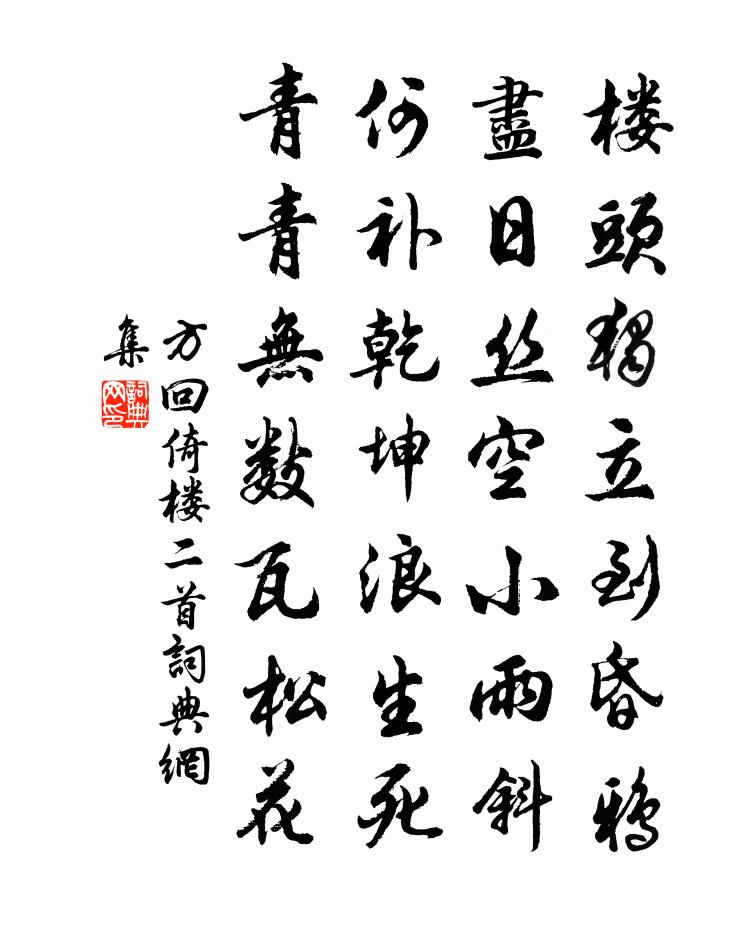 楼頭獨立到昏鴉
盡日丝空小雨斜
何补乾坤浪生死
青青無数瓦松花
方回倚楼二首詞典網
集
詞典網印